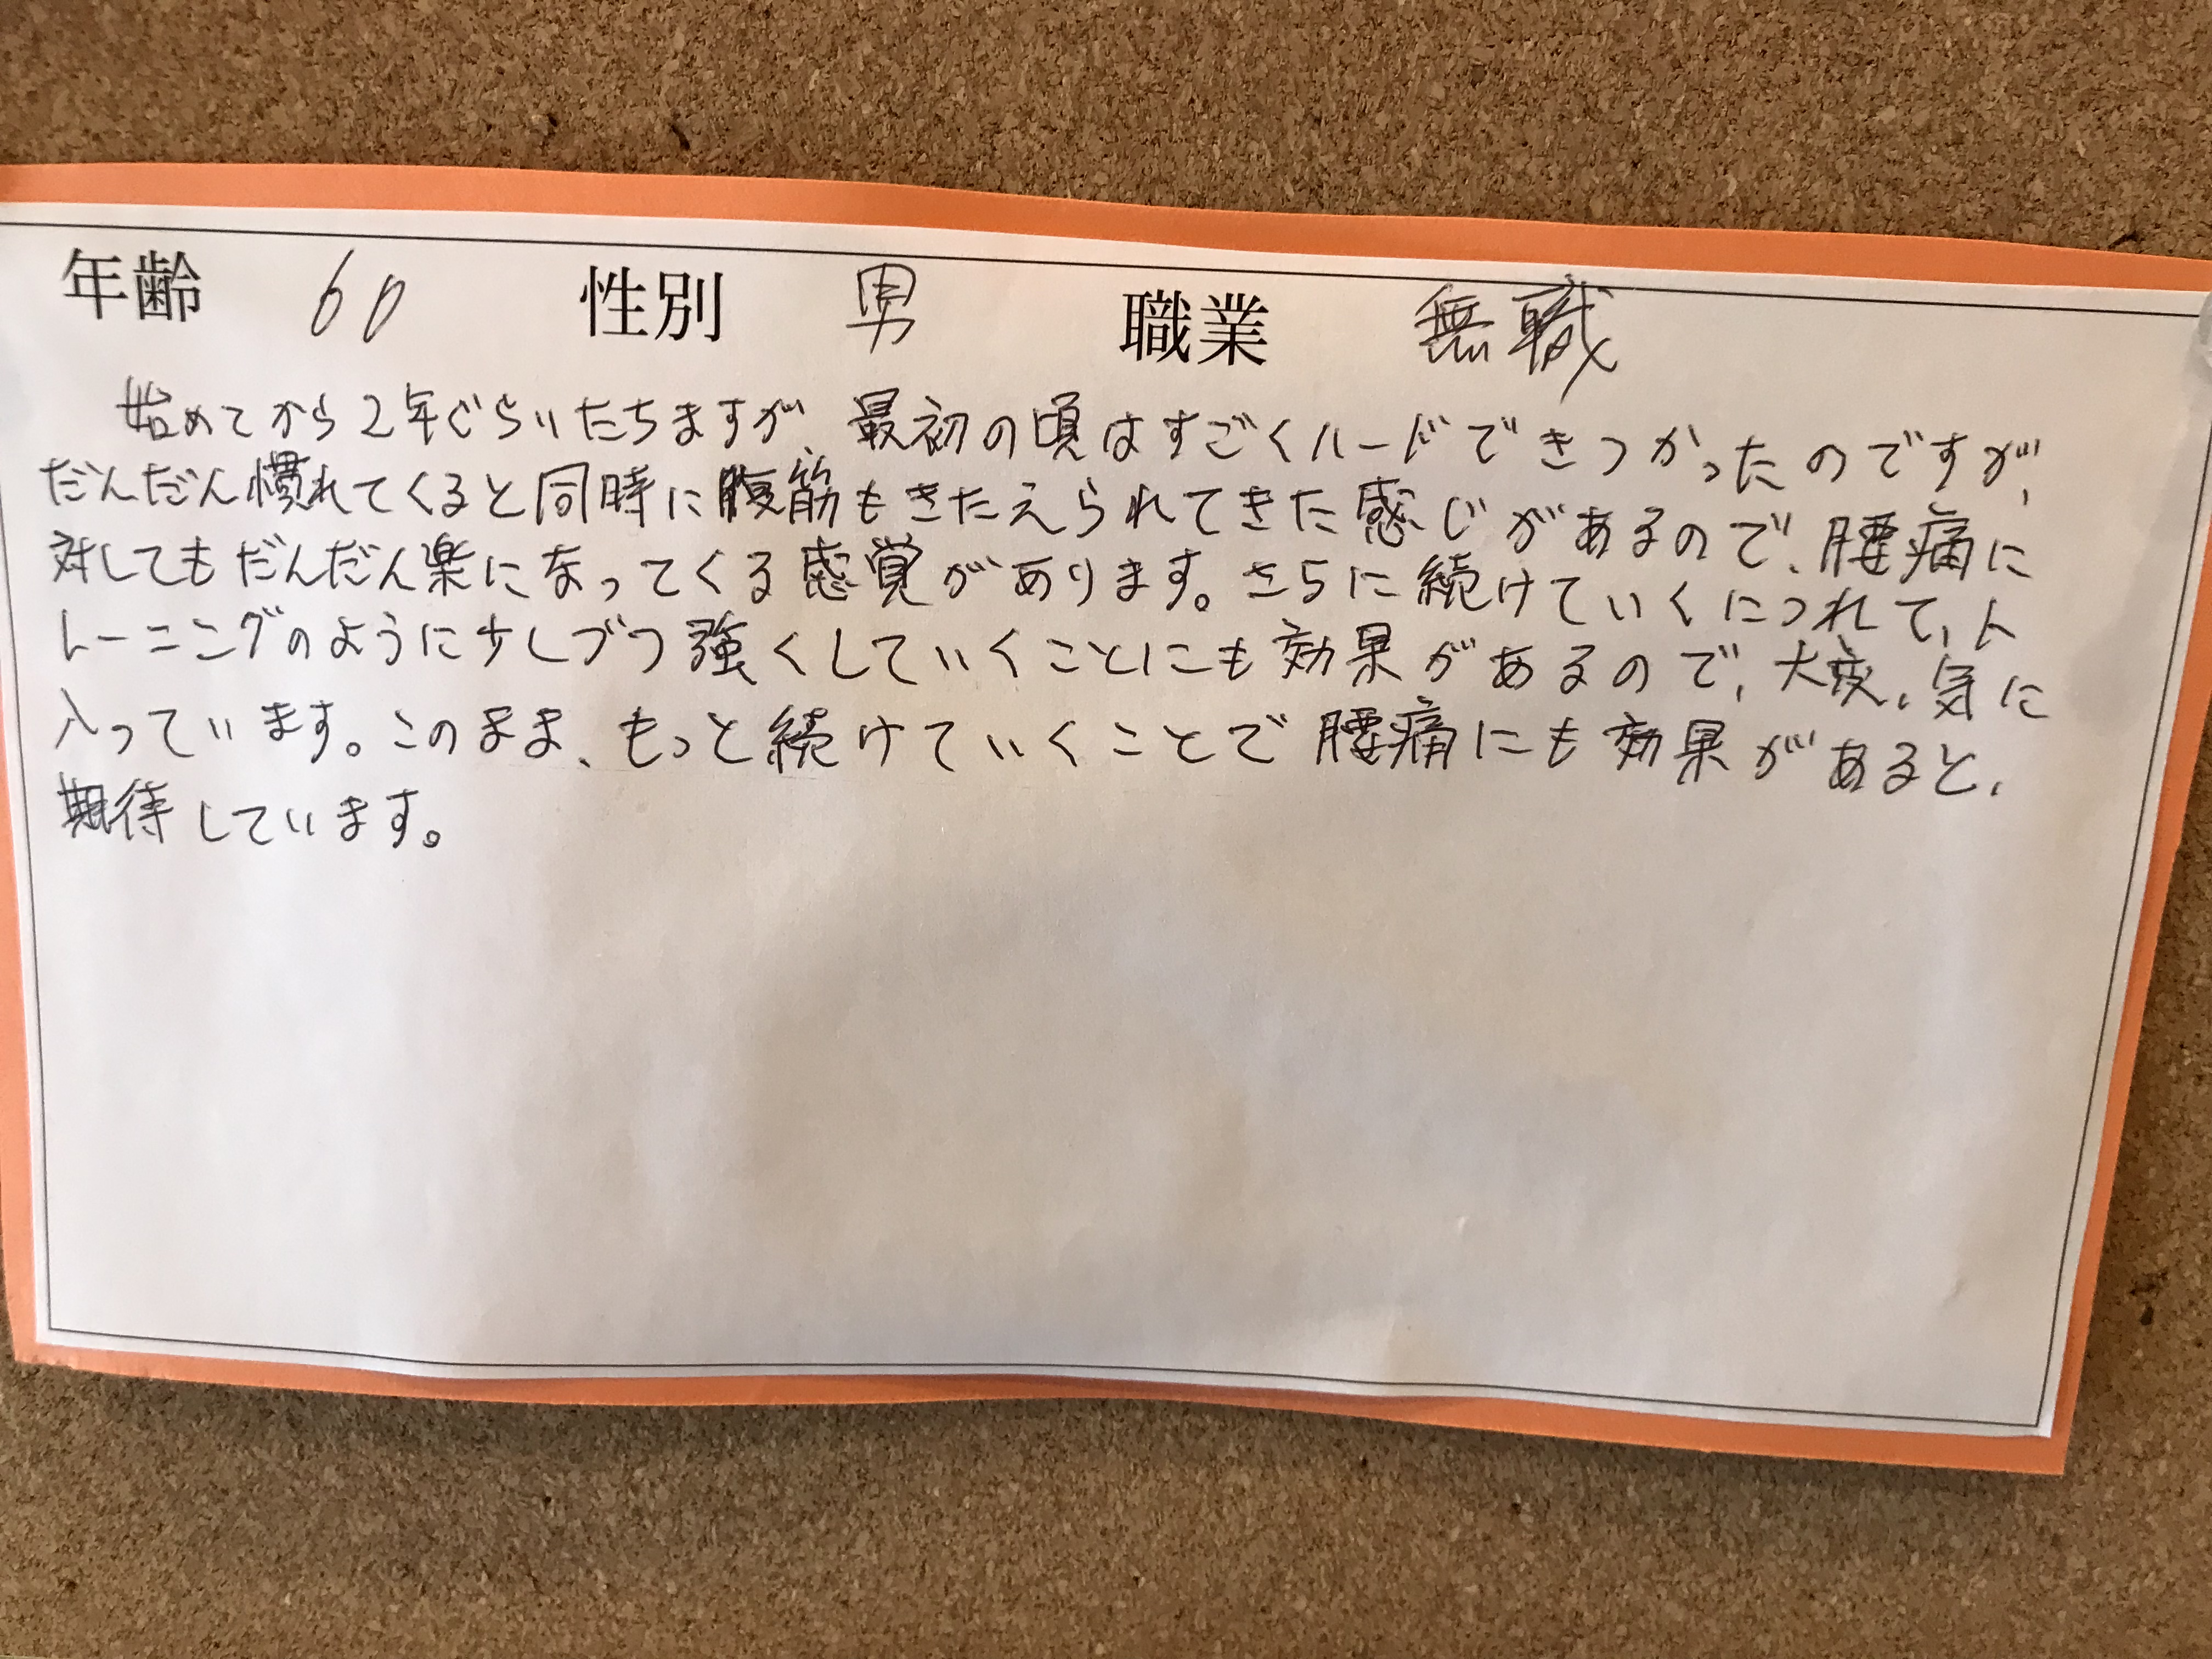 年齢 60 性別 男 職業 無職
始めてから2年ぐらいたちますが、最初の頃はすごくハードできつかったのですが、
だんだん慣れてくると同時に腹筋もきたえられてきた感じがあるので、腰痛に
対してもだんだん楽になってくる感覚があります。さらに続けていくにつれて、ト
レーニングのように少しづつ強くしていくことにも効果があるので、大変、気に
入っています。このまま、もっと続けていくことで腰痛にも効果があると、
期待しています。